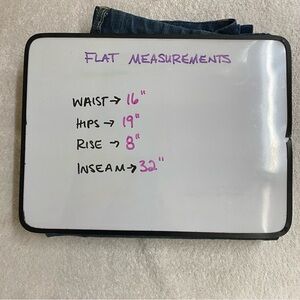 FLAT MEASUREMENTS
WAIST → 16"
HIPS → 19"
RISE → 8"
INSEAM → 32"